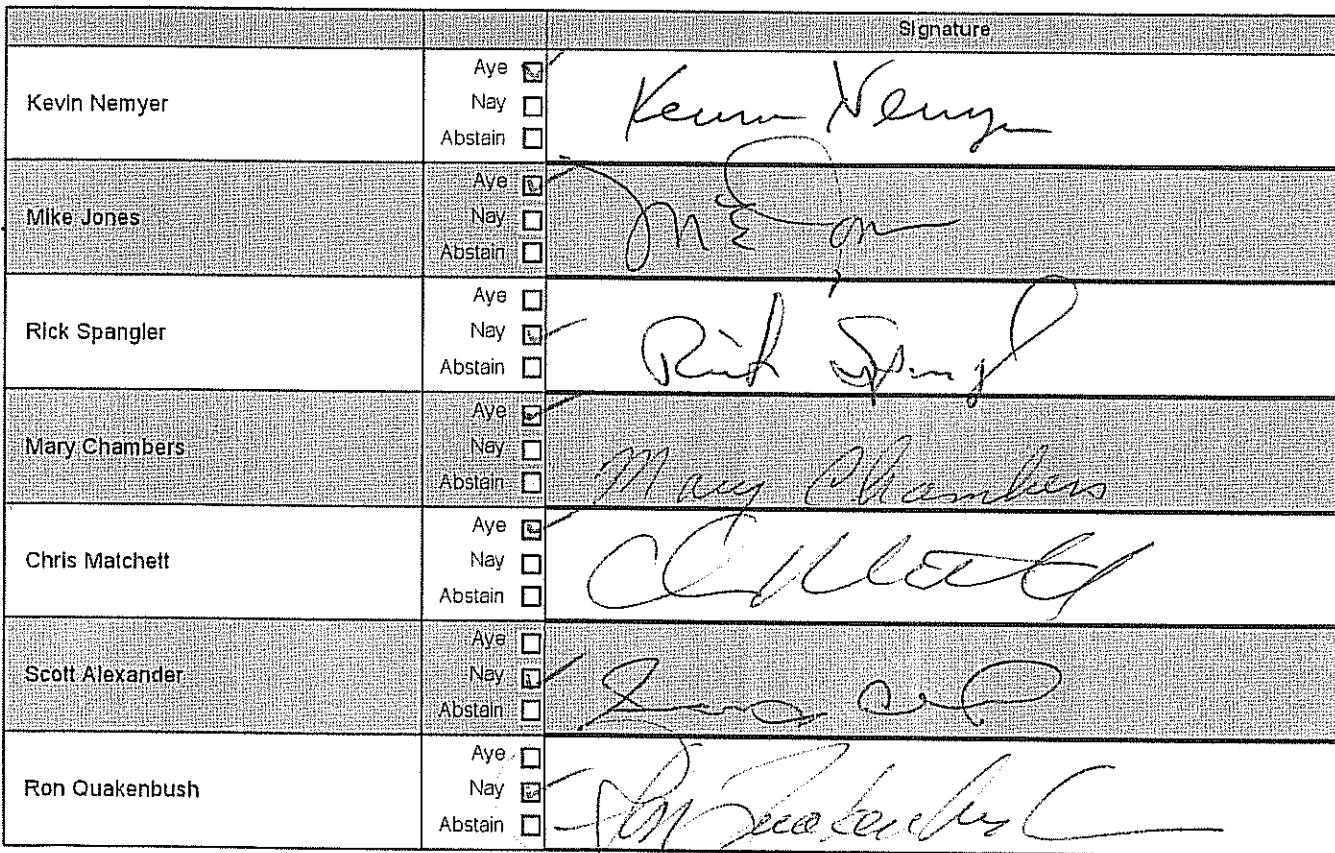 Signature
Kevin Nemyer
Aye
Nay
Abstain
Kevin Nemyer
Mike Jones
Aye
Nay
Abstain
Rick Spangler
Aye
Nay
Abstain
Rick Spangl
Mary Chambers
Aye
Nay
Abstain
Mary Chambers
Chris Matchett
Aye
Nay
Abstain
Scott Alexander
Aye
Nay
Abstain
Ron Quakenbush
Aye
Nay
Abstain
Ron Quakenbush